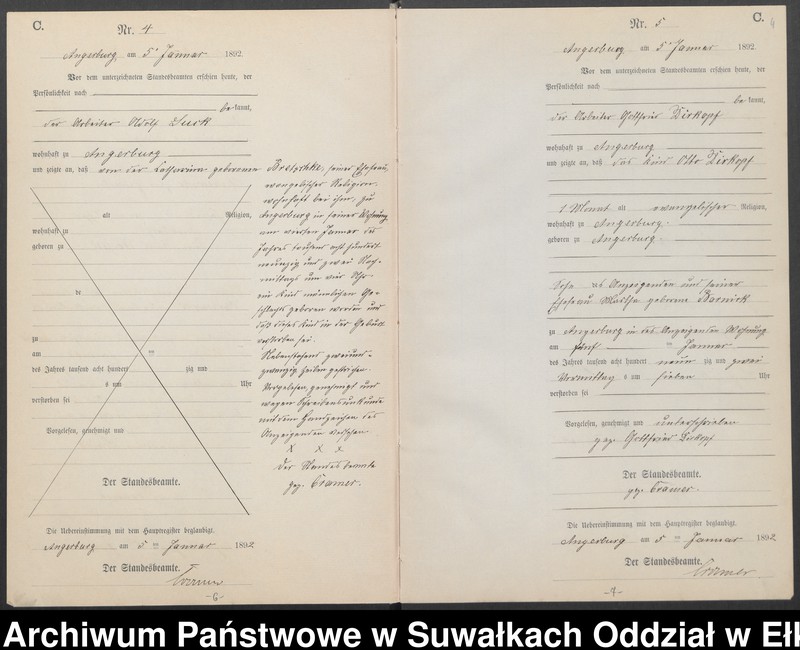 C.
Nr. 4
Angerburg am 5 t Januar 1892
Vor dem unterzeichneten Standesbeamten erschien heute, der
Persönlichkeit nach
be kannt,
der Arbeiter Adolf
wohnhaft zu Angerburg
und zeigte an, daß von der Catharina geborenen
seiner Ehefrau,
evangelischer Religion,
wohnhaft bei ihm, zu
Angerburg in seiner Wohnung
am vierten Januar des
Jahres tausend acht hundert
neunzig und zwei Nach-
mittags um vier Uhr
ein Kind männlichen Ge-
schlechts geboren worden und
daß dieses Kind in der Geburt
verstorben sei.
Nebenstehend zweiund-
zwanzig Zeilen gestrichen.
Vorgelesen, genehmigt und
wegen Schreibensunkunde
mit dem Handzeichen des
Anzeigenden versehen
X X X
Der Standesbeamte
gez. Cramer.
alt Religion,
wohnhaft zu
geboren zu
de
zu
am ten
des Jahres tausend acht hundert zig und
s um Uhr
verstorben sei
Vorgelesen, genehmigt und
Der Standesbeamte.
Die Uebereinstimmung mit dem Hauptregister beglaubigt.
Angerburg am 5 ten Januar 1892
Der Standesbeamte.
Cramer
-6-
C.
4
Nr. 5
Angerburg am 5 t Januar 1892
Vor dem unterzeichneten Standesbeamten erschien heute, der
Persönlichkeit nach
be kannt,
der Arbeiter Gottfried Dirkopf
wohnhaft zu Angerburg
und zeigte an, daß das Kind Otto Dirkopf
1 Monat alt evangelischer Religion,
wohnhaft zu Angerburg
geboren zu Angerburg
Sohn des Anzeigenden und seiner
Ehefrau geborene
zu Angerburg in des Anzeigenden Wohnung
am fünf ten Januar
des Jahres tausend acht hundert neun zig und zwei
Vormittag s um sieben Uhr
verstorben sei
Vorgelesen, genehmigt und unterschrieben
gez. Gottfried Dirkopf
Der Standesbeamte.
gez. Cramer.
Die Uebereinstimmung mit dem Hauptregister beglaubigt.
Angerburg am 5 ten Januar 1892
Der Standesbeamte.
Cramer
-7-
Archiwum Państwowe w Suwałkach Oddział w Ełk